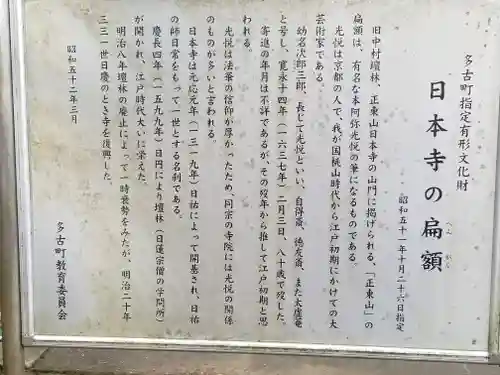 多古町指定有形文化財
日本寺の扁額
へんがく
昭和五十一年十月二十六日指定
旧中村壇林、正東山日本寺の山門に掲げられる、「正東山」の
扁額は、有名な本阿弥光悦の筆になるものである。
光悦は京都の人で、我が国桃山時代から江戸初期にかけての大
芸術家である。
幼名次郎三郎、長じて光悦といい、自得斎、徳友斎、また太虚庵
と号し、寛永十四年(一六三七年)二月三日、八十歳で歿した。
寄進の年月は不詳であるが、その歿年から推して江戸初期と思
われる。
光悦は法華の信仰が厚かったため、同宗の寺院には光悦の関係
のものが多いと言われる。
日本寺は元応元年(一三一九年)日祐によって開基され、日祐
の師日常をもって一世とする名刹である。
慶長四年(一五九九年)日円により壇林(日蓮宗僧の学問所)
が開かれ、江戸時代大いに栄えた。
明治八年壇林の廃止によって一時衰勢をみたが、明治二十年
三三一世日慶のとき寺を復興した。
昭和五十二年三月
多古町教育委員会